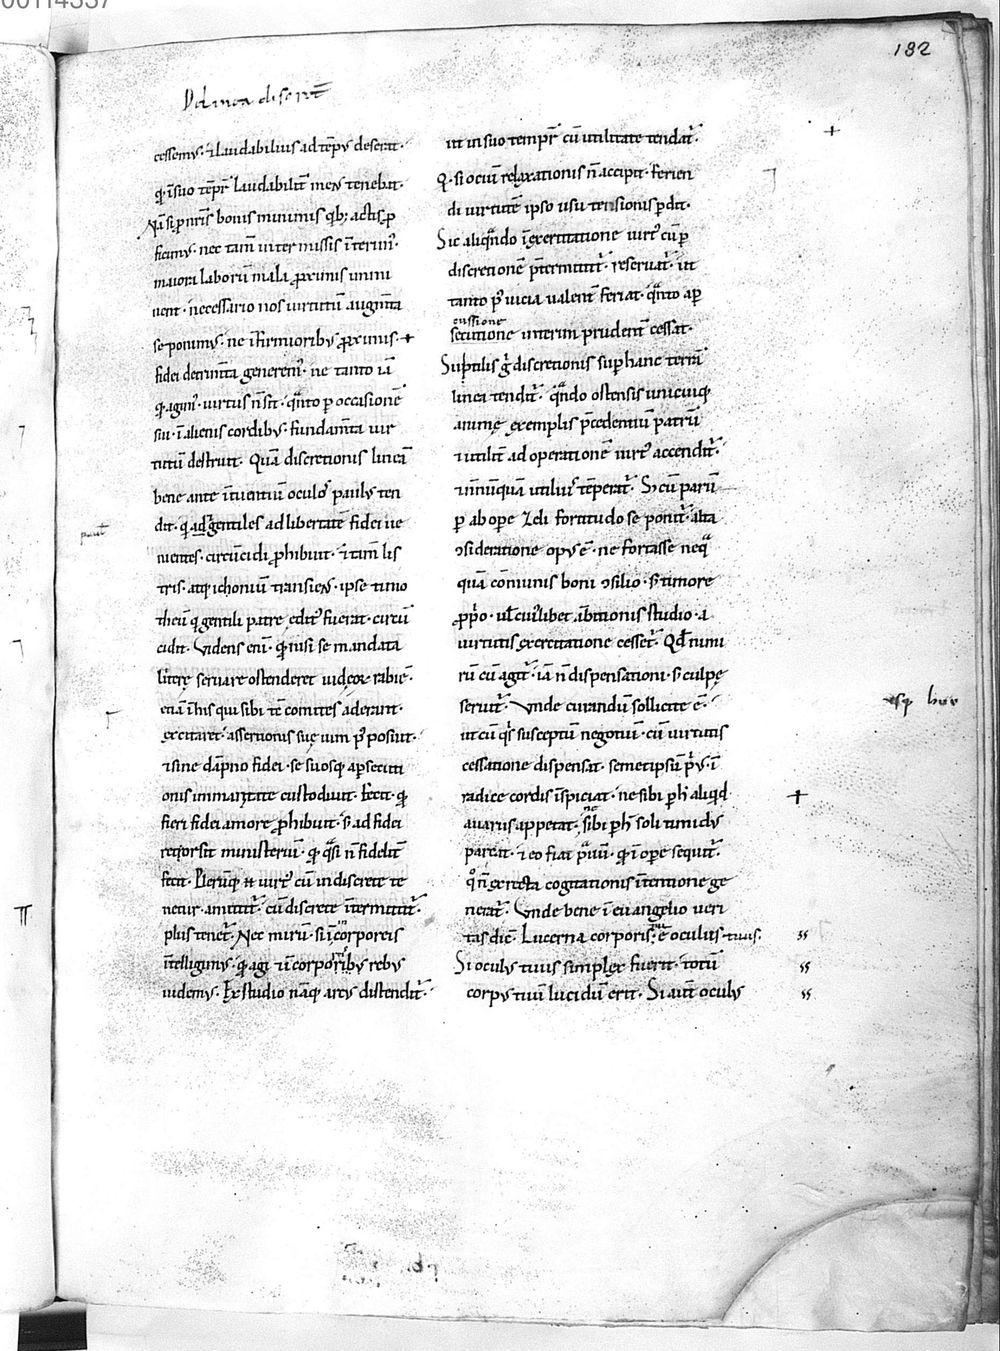 182
cessemꝰ. ⁊ laudabiliꝰ ad tēpꝰ deserit.
q̄ īsuo tēpr̄ laudabilit̄ mens tenebat.
Nā si ꝓ nr̄is bonis minimis qͥbꝫ actis ꝓ
ficimꝰ. nec tam̄ intermissis īterimꝰ.
maiori laborū mali proximis immi
nent. necessario nos uirtutū augm̄ta
seponimꝰ. ne īfirmioribꝰ proximis +
fidei detrim̄ta generemꝰ. ne tanto iā
q̄ agimꝰ uirtus n̄ sit. qͣnto ꝑ occasionē
sui ī alienis cordibꝰ fundam̄ta uir
tutū destruit. Quā discretionis lineā
bene ante ītuentiū oculos paulꝰ ten
dit. qͥ ad gentiles ad libertatē fidei ue
nientes. circūcidi ꝓhibuit. ⁊ tam̄ lis
tris atqꝫ ichoniū transiens. ipse timo
theū qͥ gentili patre editꝰ fuerat. circū
cidit. Videns enī. q̄ nisi se mandata
litterę seruare ostenderet iudęoꝝ rabiē.
etiā ī his qui sibi tc̄ comites aderant.
excitaret. assertionis suę uim pͦposuit.
⁊ sine dāpno fidei. se suosqꝫ a ꝑsecuti
onis immanitate custodiuit. Fecit. q̄
fieri fidei amore ꝓhibuit. sꝫ ad fidei
retorsit ministeriū. q̄ qͣsi n̄ fidelit̄
fecit. Plerūqꝫ n̄ uirtꝰ cū indiscrete te
netur. amittit᷑. cū discrete īt̄mittit᷑.
plus tenet᷑. Nec mirū. si ī incorporeis
ītelligimꝰ. q̄ agi ⁊ ī corporeis rebꝰ
uidemꝰ. Ex studio nāqꝫ arcꝰ distendit᷑.
ut in suo tempr̄ cū utilitate tendat᷑.
Q. si ociū relaxationis n̄ accipit. ferien
di uirtutē ipso usu tensionis ꝑdit.
Sic aliqͣndo ī exercitatione uirtꝰ cū ꝑ
discretionē p̄termittit᷑. reseruat᷑. ut
tanto pͦ uicia ualent̄ feriat. qͣnto a ꝑ
cussione
secutione interim prudent̄ cessat.
Suptilis gͦ discretionis suꝑ hanc terrā
linea tendit᷑. qͣndo ostensis unicuiqꝫ
animę exemplis p̄cedentiū patrū
⁊ utilit̄ ad operationē uirtꝰ accendit᷑.
⁊ nnūquā utiliꝰ tēperat᷑. Sꝫ cū parū
ꝑ ab ope zeli fortitudo se ponit᷑. alta
ꝯsideratione opꝰ ē. ne fortasse neqͣ
quā cōmunis boni ꝯsilio. sꝫ timore
ꝓpͥo. ul̄ cuiꝰlibet ābitionis studio. a
uirtutis exercitatione cesset᷑. Qd̄ nimi
rū cū agit᷑. iā n̄ dispensationi. sꝫ culpę
seruit᷑. Vnde curandū sollicite ē.
ut cū qͥs susceptū negotiū. cū uirtutis
cessatione dispensat. semetipsū pͥꝰ. ī
radice cordis īspiciat. ne sibi ꝑ h̄ aliqͥd
auariꝰ appetat. ne sibi ꝑ h̄ soli timidꝰ
parcat. ⁊ eo fiat prauū. q̄ ī ope sequit᷑.
qͦ n̄ ex recta cogitationis ītentione ge
nerat᷑. Vnde bene ī euangelio ueri
tas dic̄. Lucerna corporis tui ē oculus tuus.
Si oculꝰ tuus simplex fuerit. totū
corpꝰ tuū lucidū erit. Si aut̄ oculꝰ